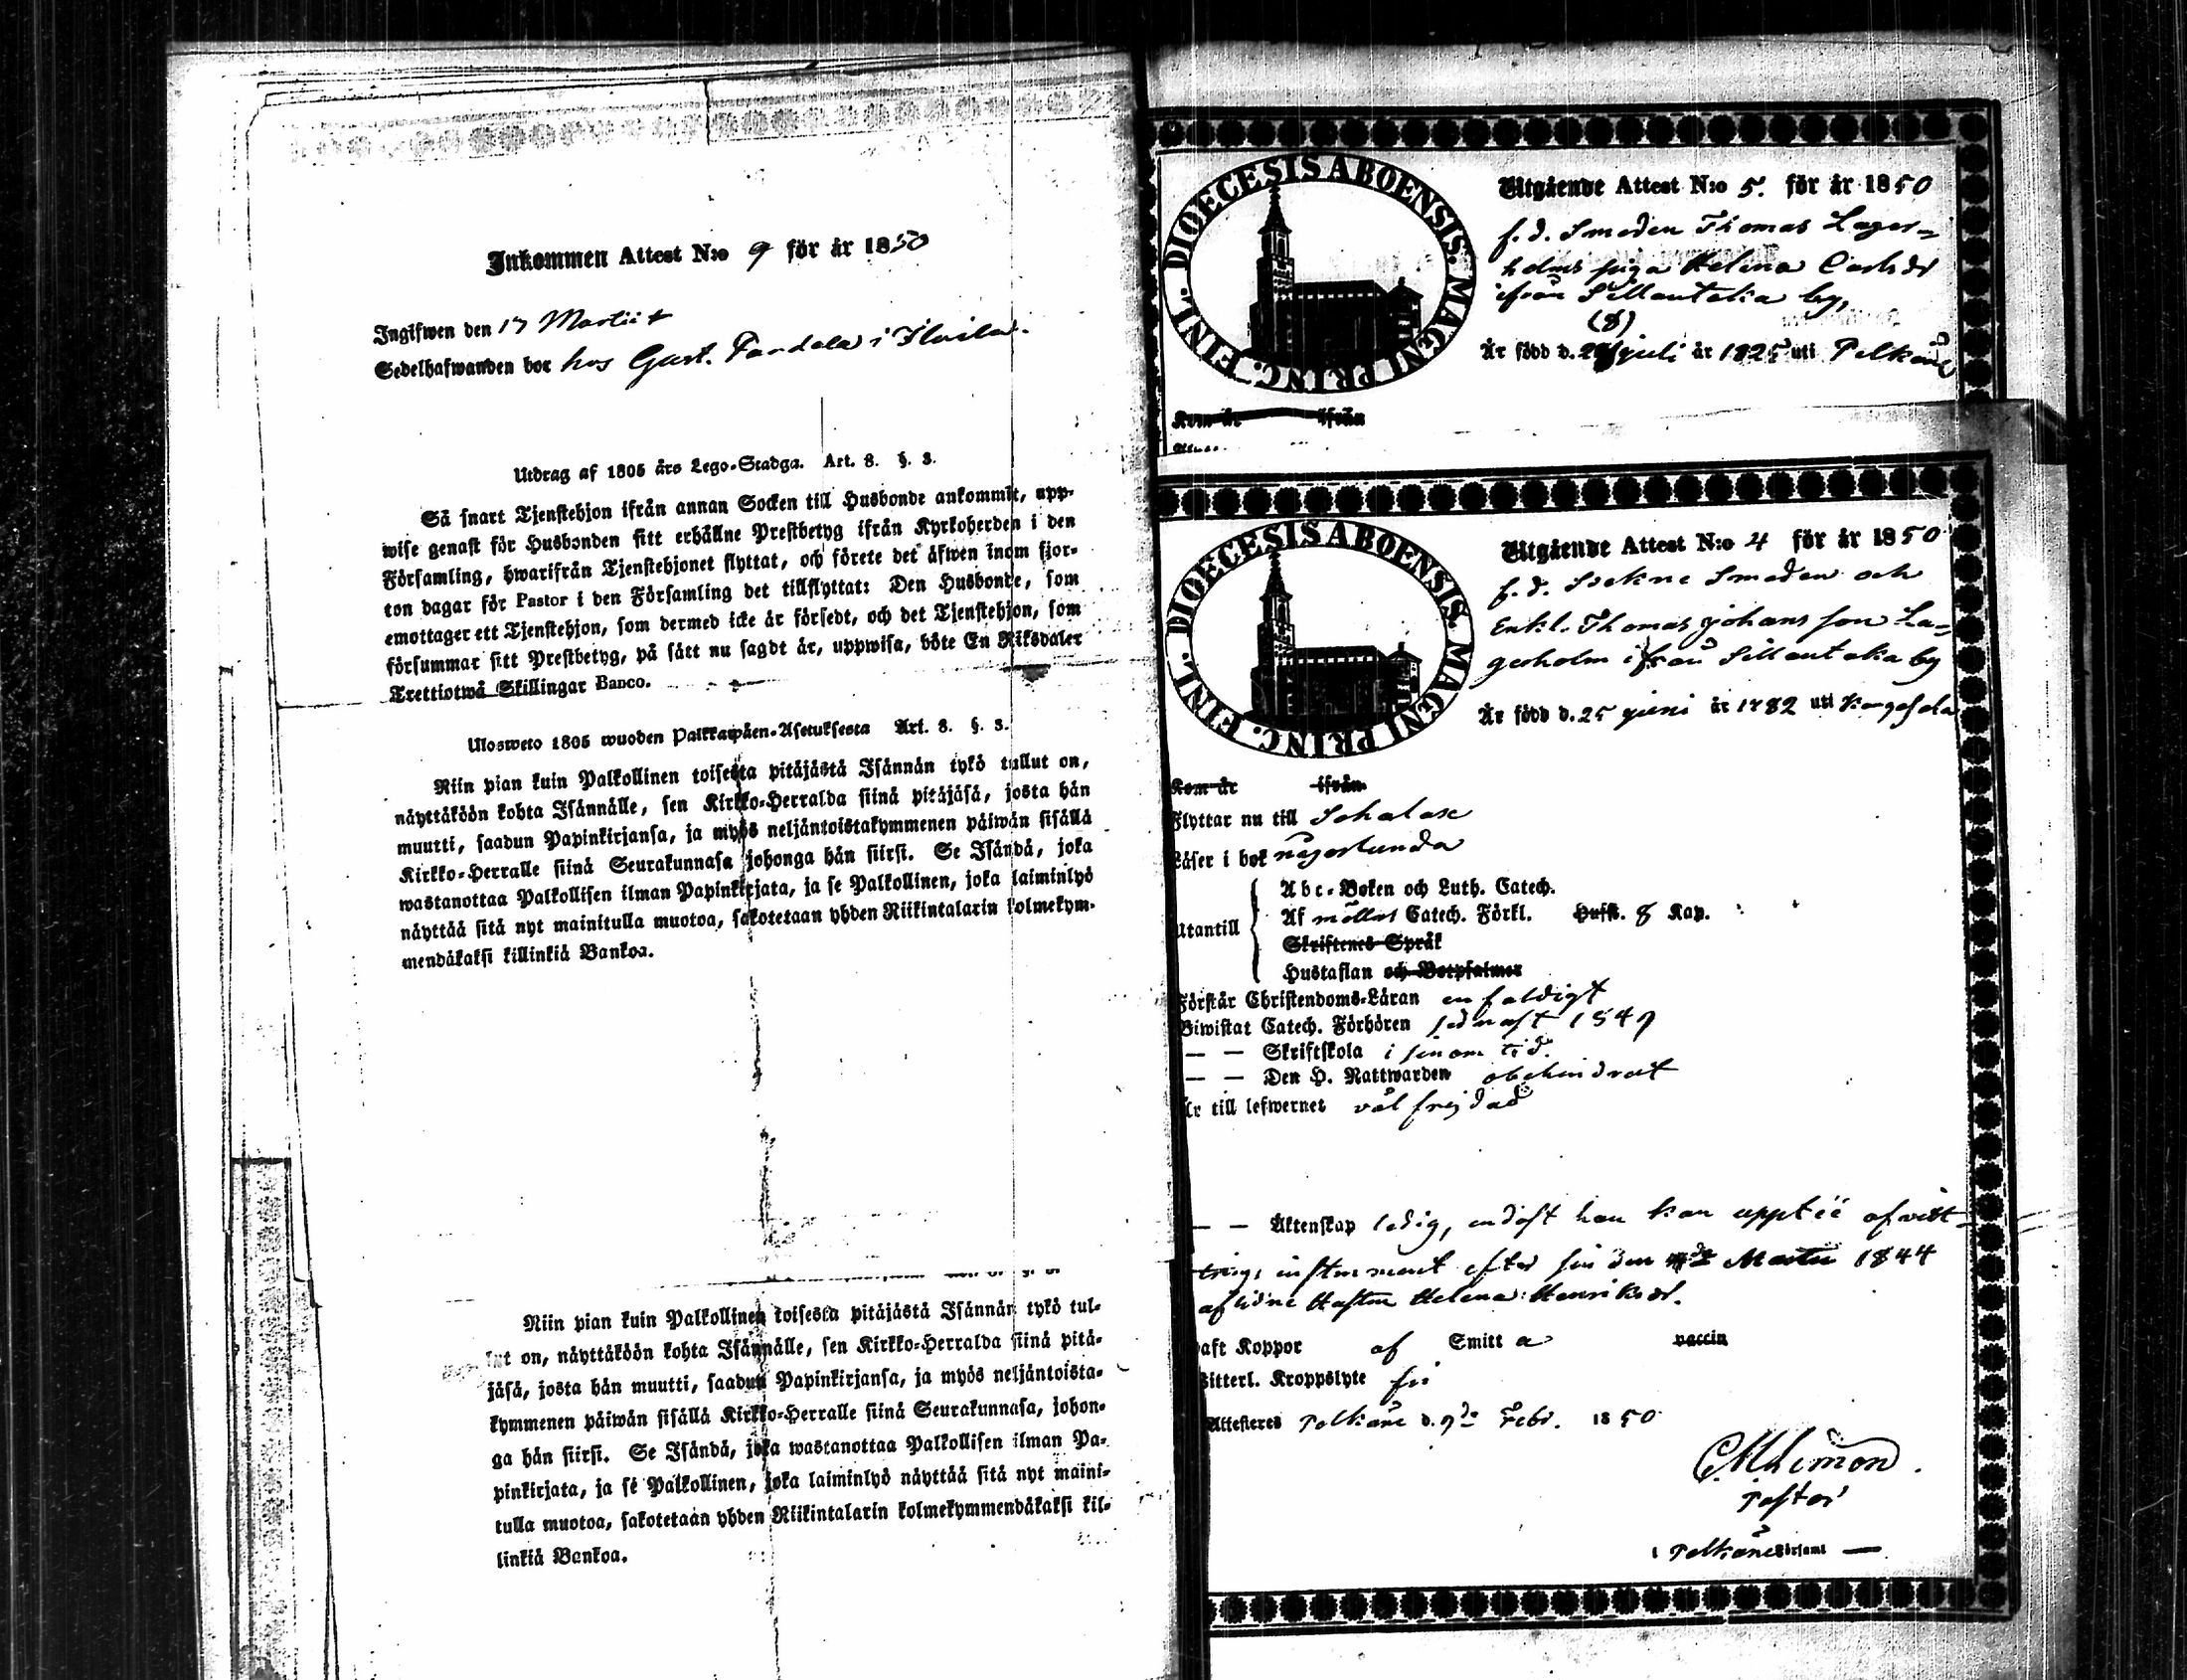 Inkommen Attest N:o 9 för år 1850
Ingifwen den 17 Martii
Sedelhafwanden bor hos Gust. i
Utdrag af 1805 års Lego-Stadga. Art. 8. §. 3.
Så snart Tjenstehjon ifrån annan Socken till Husbonde ankommit, upp-
wise genast för Husbonden sitt erhållne Prestbetyg ifrån Kyrkoherden i den
Församling, hwarifrån Tjenstehjonet flyttat, och förete det äfwen inom fjor-
ton dagar för Pastor i den Församling det tillflyttat: Den Husbonde, som
emottager ett Tjenstehjon, som dermed icke är försedt, och det Tjenstehjon, som
försummar sitt Prestbetyg, på sätt nu sagdt är, uppwisa, böte En Riksdaler
Trettiotwå Skillingar Banco.
Ulosweto 1805 wuoden Palkrawäen-Asetuksesta Art. 8. §. 3.
Niin pian kuin Palkollinen toisesta pitäjästä Isännän tykö tullut on,
näyttäköön kohta Isännälle, sen Kirkko-Herralda siinä pitäjäsä, josta hän
muutti, saadun Papinkirjansa, ja myös neljäntoistakymmenen päiwän sisällä
Kirkko-Herralle siinä Seurakunnasa johonga hän siirsi. Se Isändä, joka
wastanottaa Palkollisen ilman Papinkirjata, ja se Palkollinen, joka laiminlyö
näyttää sitä nyt mainitulla muotoa, sakotetaan yhden Riikintalarin kolmekym-
mendäkaksi killinkiä Bankoa.
Niin pian kuin Palkollinen toisesta pitäjästä Isännän tykö tul-
lut on, näyttäköön kohta Isännälle, sen Kirkko-Herralda siinä pitä-
jäsä, josta hän muutti, saadun Papinkirjansa, ja myös neljäntoista-
kymmenen päiwän sisällä Kirkko-Herralle siinä Seurakunnasa, johon-
ga hän siirsi. Se Isändä, joka wastanottaa Palkollisen ilman Pa-
pinkirjata, ja se Palkollinen, joka laiminlyö näyttää sitä nyt maini-
tulla muotoa, sakotetaan yhden Riikintalarin kolmekymmendäkaksi kil-
linkiä Bankoa.
FINL. DIOECESIS ABOENSIS. MAGNI PRINC.
Utgående Attest N:o 5. för år 1850
f. d. Smeden Thomas Lager-
holms piga Helena Carlsdr
ifrån Sillantaka by,
(8)
Är född d. juli år 1825 uti Pelkäne
Kom år ifrån
FINL. DIOECESIS ABOENSIS. MAGNI PRINC.
Utgående Attest N:o 4 för år 1850
f. d. Sockne Smeden och
Enkl. Thomas Johansson La-
gerholm ifrån Sillantaka by
Är född d. 25 juni år 1782 uti Kangasala
Kom år ifrån
Flyttar nu till
Läser i bok någorlunda
Utantill
Abc-Boken och Luth. Catech.
Af möllers Catech. Förkl. Hufst. 8 Kap.
Skriftenes Språk
Hustaflan och Botpsalmer
Förstår Christendoms-Läran enfaldigt
Biwistat Catech. Förhören sednast 1849
— — Skriftskola i sinom tid.
— — Den H. Nattwarden obehindrat
Är till lefwernet väl frejdad
— — Äktenskap ledig, endast han kan uppte afvitt-
trings instrument efter sin den Martii 1844
aflidne Hustru Helena Henriksdr.
Haft Koppor af Smitta vaccin
Witterl. Kroppslyte fri
Attesteres Pelkäne d. 9de Febr. 1850
Pastor
i Pelkäne Församl —